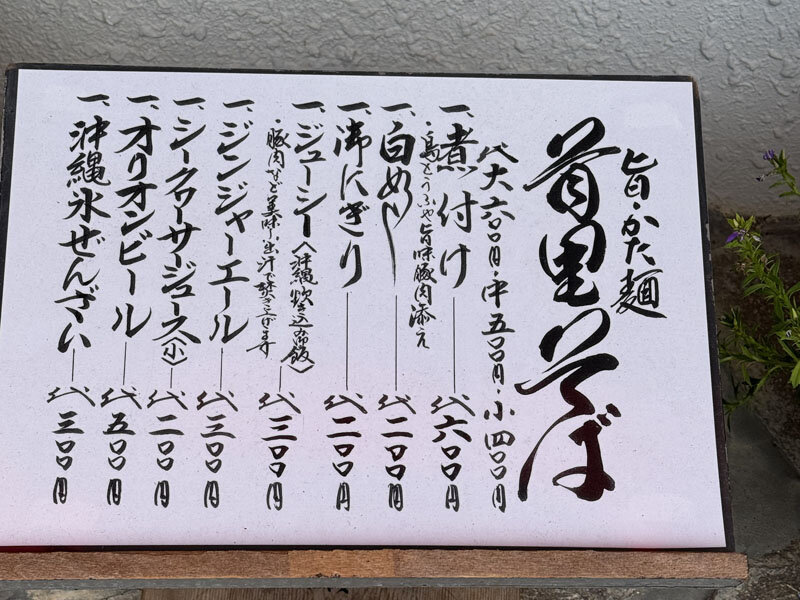 旨・かた麺
首里そば
代大六〇〇円・中五〇〇円・小四〇〇円
一、煮付け 代六〇〇円
・島どうふや旨味豚肉添え
一、白めし 代二〇〇円
一、御にぎり 代二〇〇円
一、ジューシー〈沖縄炊き込み御飯〉 代三〇〇円
・豚肉など美味し出汁で炊き上げます
一、ジンジャーエール 代三〇〇円
一、シークワーサージュース〈小〉 代二〇〇円
一、オリオンビール 代五〇〇円
一、沖縄氷ぜんざい 代三〇〇円